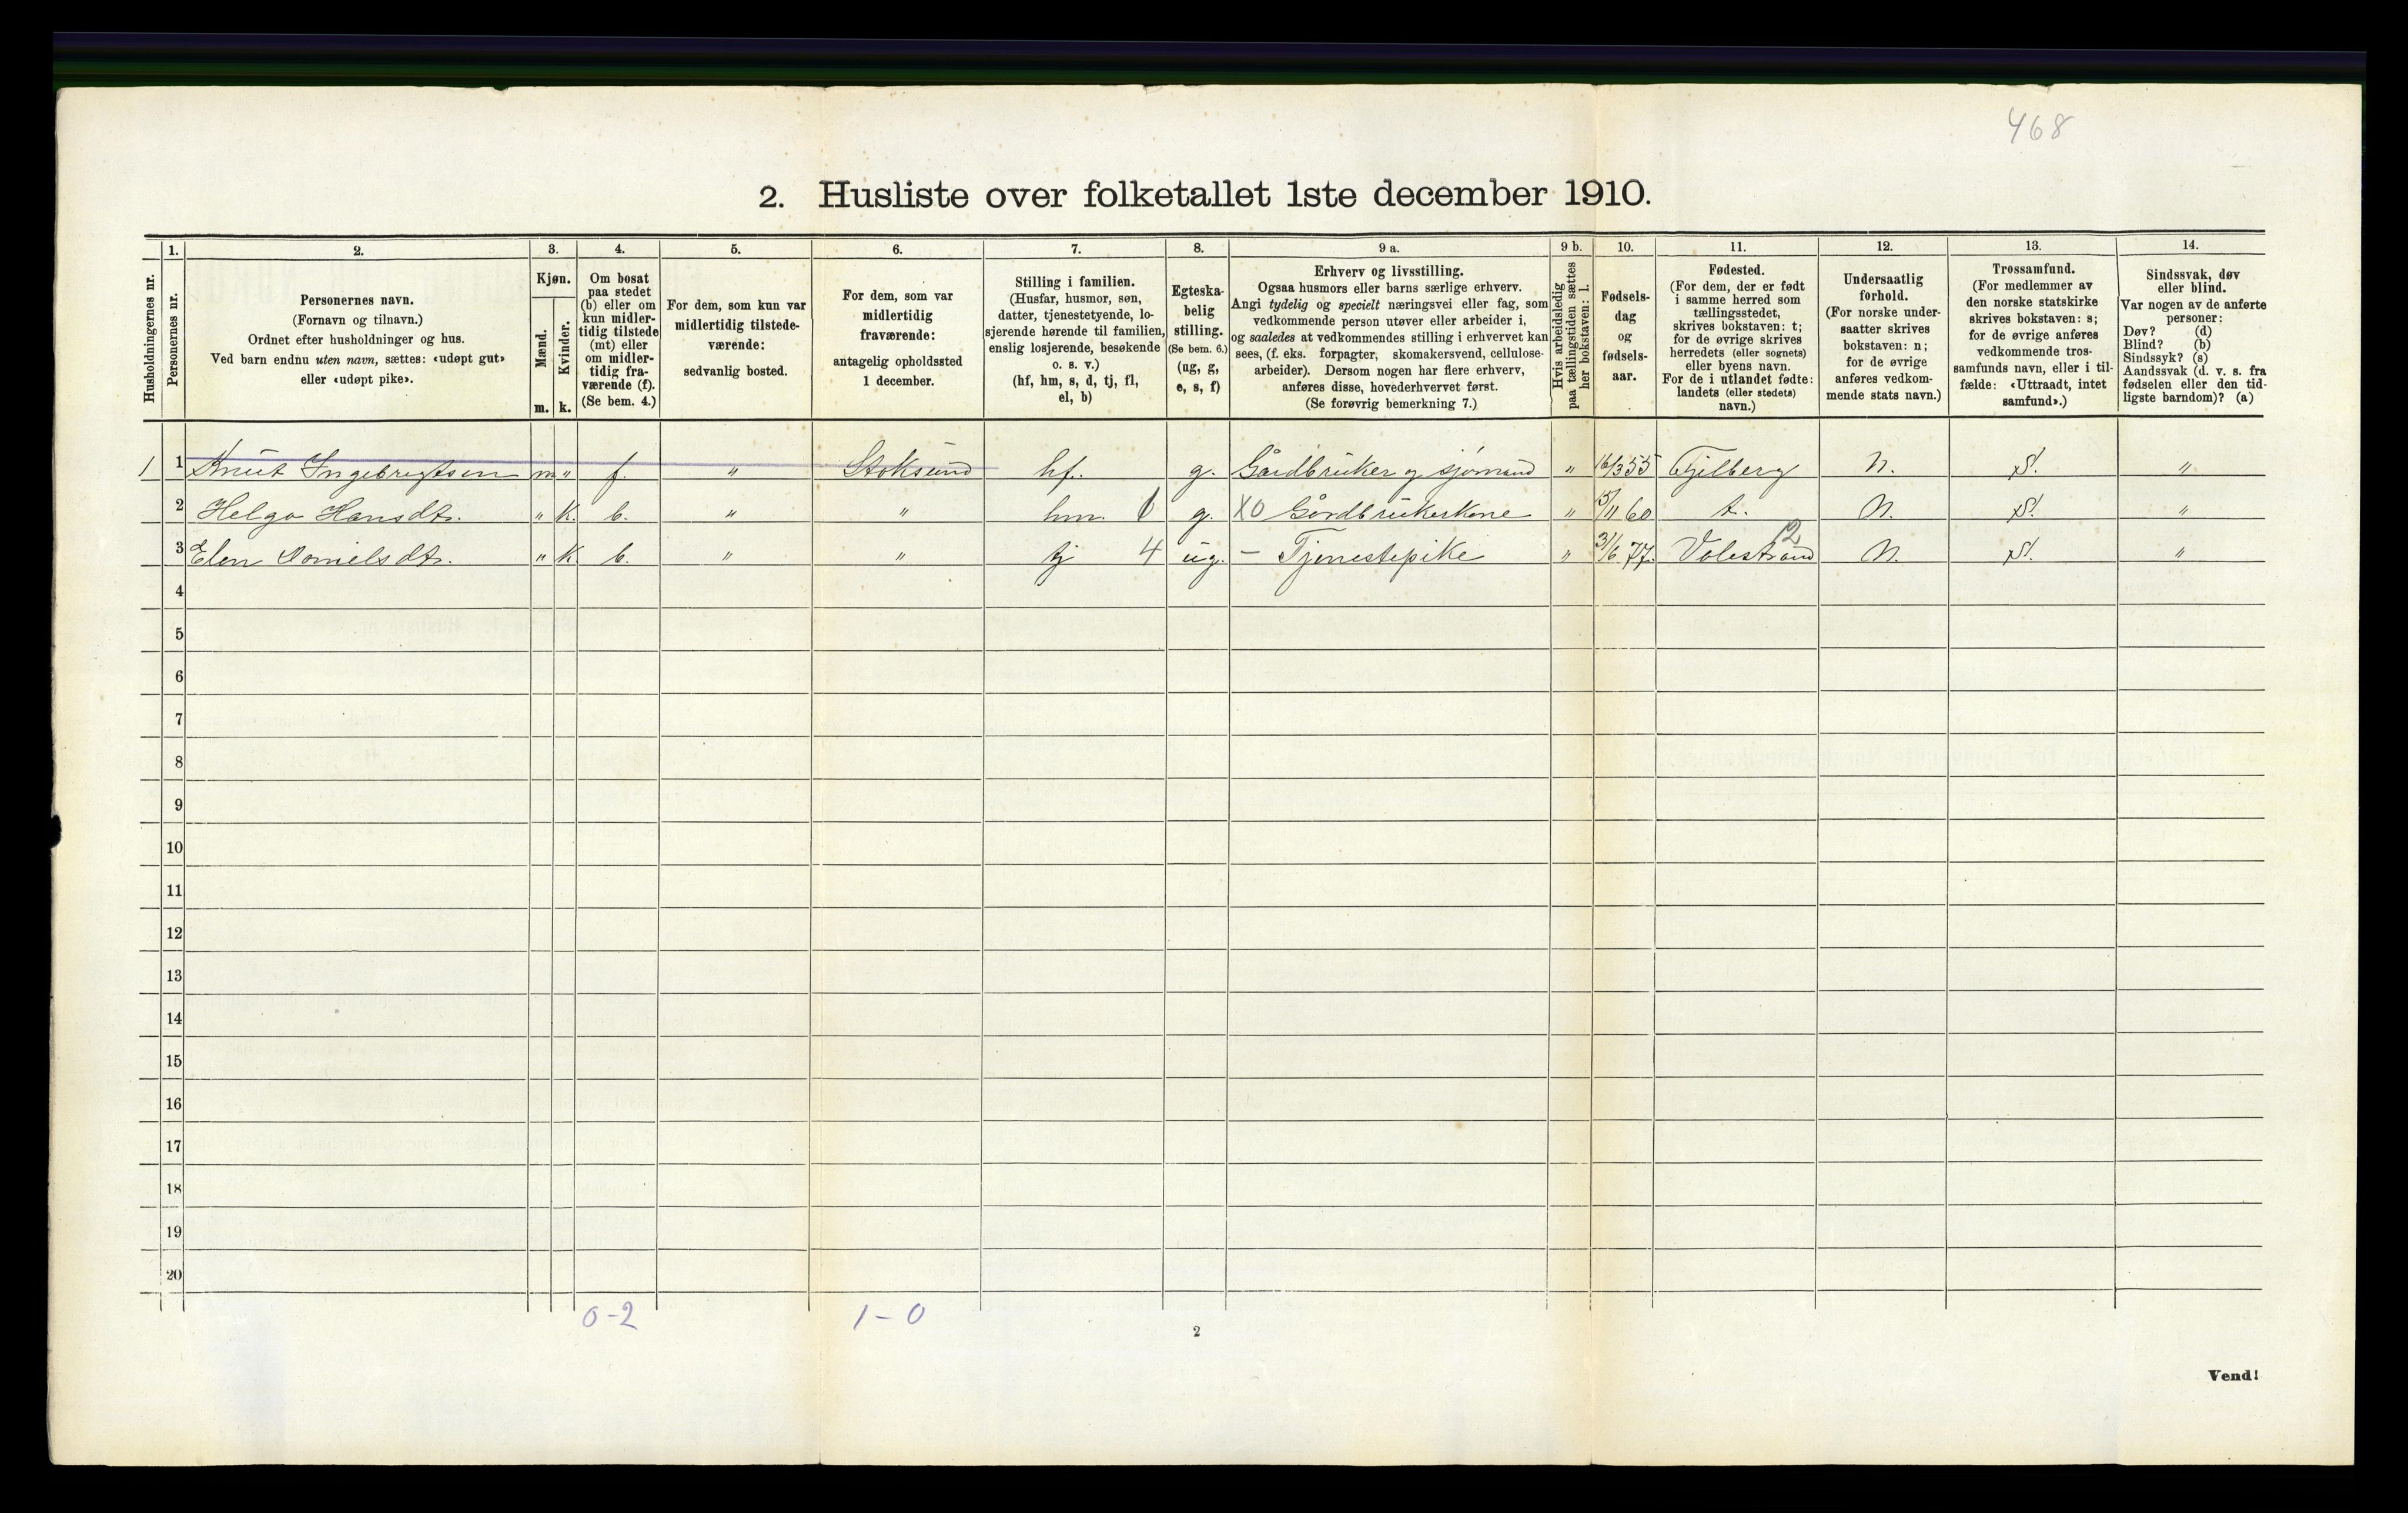 468
2. Husliste over folketallet 1ste december 1910.
Husholdningernes nr.
1.
Personernes nr.
2.
Personernes navn.
(Fornavn og tilnavn.)
Ordnet efter husholdninger og hus.
Ved barn endnu uten navn, sættes: «udøpt gut»
eller «udøpt pike».
3.
Kjøn.
Mænd.
m.
Kvinder.
k.
4.
Om bosat
paa stedet
(b) eller om
kun midler-
tidig tilstede
(mt) eller
om midler-
tidig fra-
værende (f).
(Se bem. 4.)
5.
For dem, som kun var
midlertidig tilstede-
værende:
sedvanlig bosted.
6.
For dem, som var
midlertidig
fraværende:
antagelig opholdssted
1 december.
7.
Stilling i familien.
(Husfar, husmor, søn,
datter, tjenestetyende, lo-
sjerende hørende til familien,
enslig losjerende, besøkende
o. s. v.)
(hf, hm, s, d, tj, fl,
el, b)
8.
Egteska-
belig
stilling.
(Se bem. 6.)
(ug, g,
e, s, f)
9 a.
Erhverv og livsstilling.
Ogsaa husmors eller barns særlige erhverv.
Angi tydelig og specielt næringsvei eller fag, som
vedkommende person utøver eller arbeider i,
og saaledes at vedkommendes stilling i erhvervet kan
sees, (f. eks. forpagter, skomakersvend, cellulose-
arbeider). Dersom nogen har flere erhverv,
anføres disse, hovederhvervet først.
(Se forøvrig bemerkning 7.)
9 b.
Hvis arbeidsledig
paa tællingstiden sættes
her bokstaven: l.
10.
Fødsels-
dag
og
fødsels-
aar.
11.
Fødested.
(For dem, der er født
i samme herred som
tællingsstedet,
skrives bokstaven: t;
for de øvrige skrives
herredets (eller sognets)
eller byens navn.
For de i utlandet fødte:
landets (eller stedets)
navn.)
12.
Undersaatlig
forhold.
(For norske under-
saatter skrives
bokstaven: n;
for de øvrige
anføres vedkom-
mende stats navn.)
13.
Trossamfund.
(For medlemmer av
den norske statskirke
skrives bokstaven: s;
for de øvrige anføres
vedkommende tros-
samfunds navn, eller i til-
fælde: «Uttraadt, intet
samfund».)
14.
Sindssvak, døv
eller blind.
Var nogen av de anførte
personer:
Døv? (d)
Blind? (b)
Sindssyk? (s)
Aandssvak (d. v. s. fra
fødselen eller den tid-
ligste barndom)? (a)
1 1 Knut Ingebrigtsen m " f. " Stoksund hf. g. Gårdbruker og sjømand " 16/3 55 Fjelberg N. S. "
2 Helga Hansdtr. " K. b. " " hm. g. XO Gårdbrukerkone " 15/11 60 t. N. S. "
3 Elen Danielsdtr. " K b. " " tj 4 ug. – Tjenestepike " 3/6 77. Valestrand 12 N. S. "
4
5
6
7
8
9
10
11
12
13
14
15
16
17
18
19
20
0-2 1-0
2
Vend!